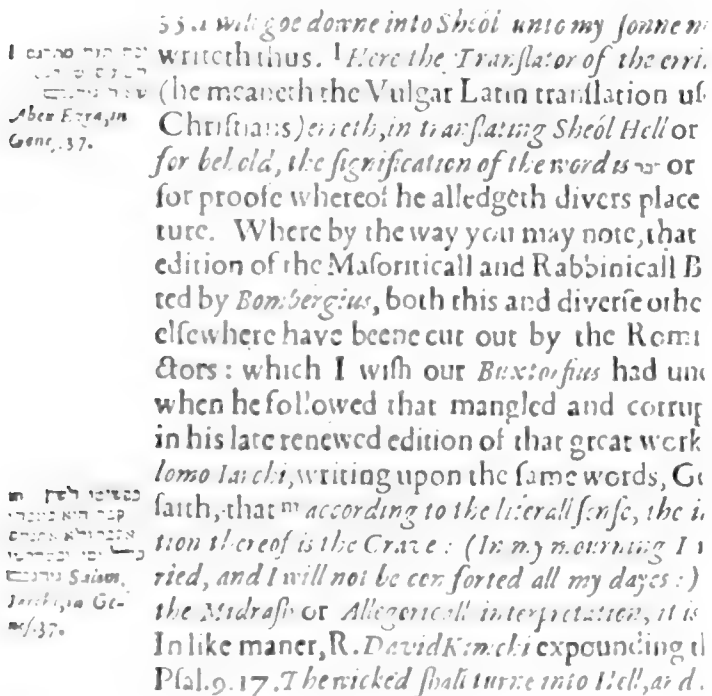 35. I will goe downe into Sheól unto my sonne
writeth thus. l Here the Translator of the
(he meaneth the Vulgar Latin translation
Christians) erreth, in translating Sheól Hell or
for behold, the signification of the word is קבר or
for proofe whereof he alledgeth divers place
ture. Where by the way you may note, that
edition of the Masoriticall and Rabbinicall B
ted by Bombergius, both this and diverse othe
elsewhere have beene cut out by the Romi
ctors: which I wish our Buxtorfius had
when he followed that mangled and corrup
in his late renewed edition of that great work
lomo Iarchi, writing upon the same words, Ge
saith, that m according to the literall sense, the
tion thereof is the Grave: (In my mourning I
ried, and I will not be comforted all my dayes:)
the Midrash or Allegoricall interpretation, it is
In like maner, R. David Kimchi expounding
Psal. 9. 17. The wicked shall turne into Hell, and
l
Aben Ezra, in
Gene. 37.
m
Salom.
Iarchi, in Ge-
nes. 37.